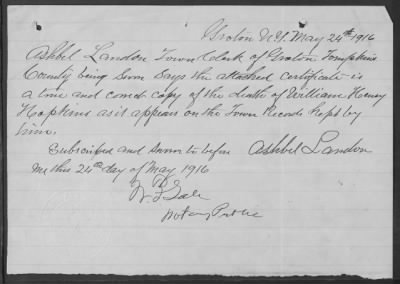 Groton N.Y. May 24th 1916
Ashbel Landon Town Clerk of Groton Tompkins
County being Sworn Says the attached certificate is
a true and correct copy of the death of William Henry
Hopkins as it appears on the Town Records kept by
him.
Subscribed and Sworn to before Ashbel Landon
me this 24th day of May 1916
Gale
Notary Public